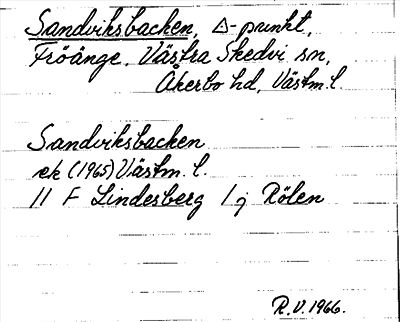 Sandviksbacken, △-punkt,
Fröänge, Västra Skedvi sn,
Åkerbo hd, Västm. l.
Sandviksbacken
ek (1965) Västm. l.
11 F Lindesberg 1 j Rölen
R.V. 1966.